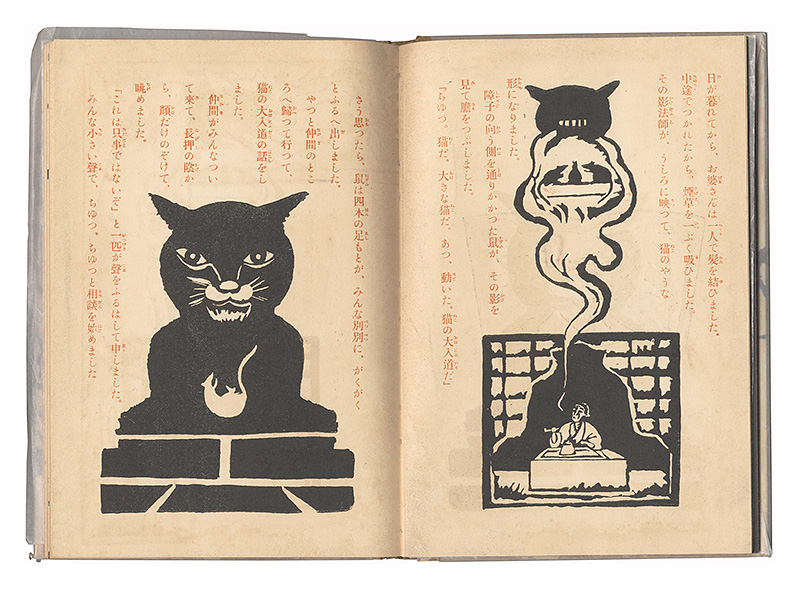 日が暮れてから、お婆さんは一人で髮を結ひました。
中途でつかれたから、煙草を一ぷく吸ひました。
その影法師が、うしろに映つて、猫のやうな
形になりました。
障子の向う側を通りかかつた鼠が、その影を
見て膽をつぶしました。
「ちゆつ。猫だ。大きな猫だ。あつ、動いた。猫の大入道だ」
さう思つたら、鼠は四本の足もとが、みんな別別に、がくがく
とふるへ出しました。
やつと仲間のとこ
ろへ歸つて行つて、
猫の大入道の話をし
ました。
仲間がみんなつい
て來て、長押の陰か
ら、顏だけのぞけて、
眺めました。
「これは只事ではないぞ」と一匹が聲をふるはして申しました。
みんな小さい聲で、ちゆつ、ちゆつと相談を始めました